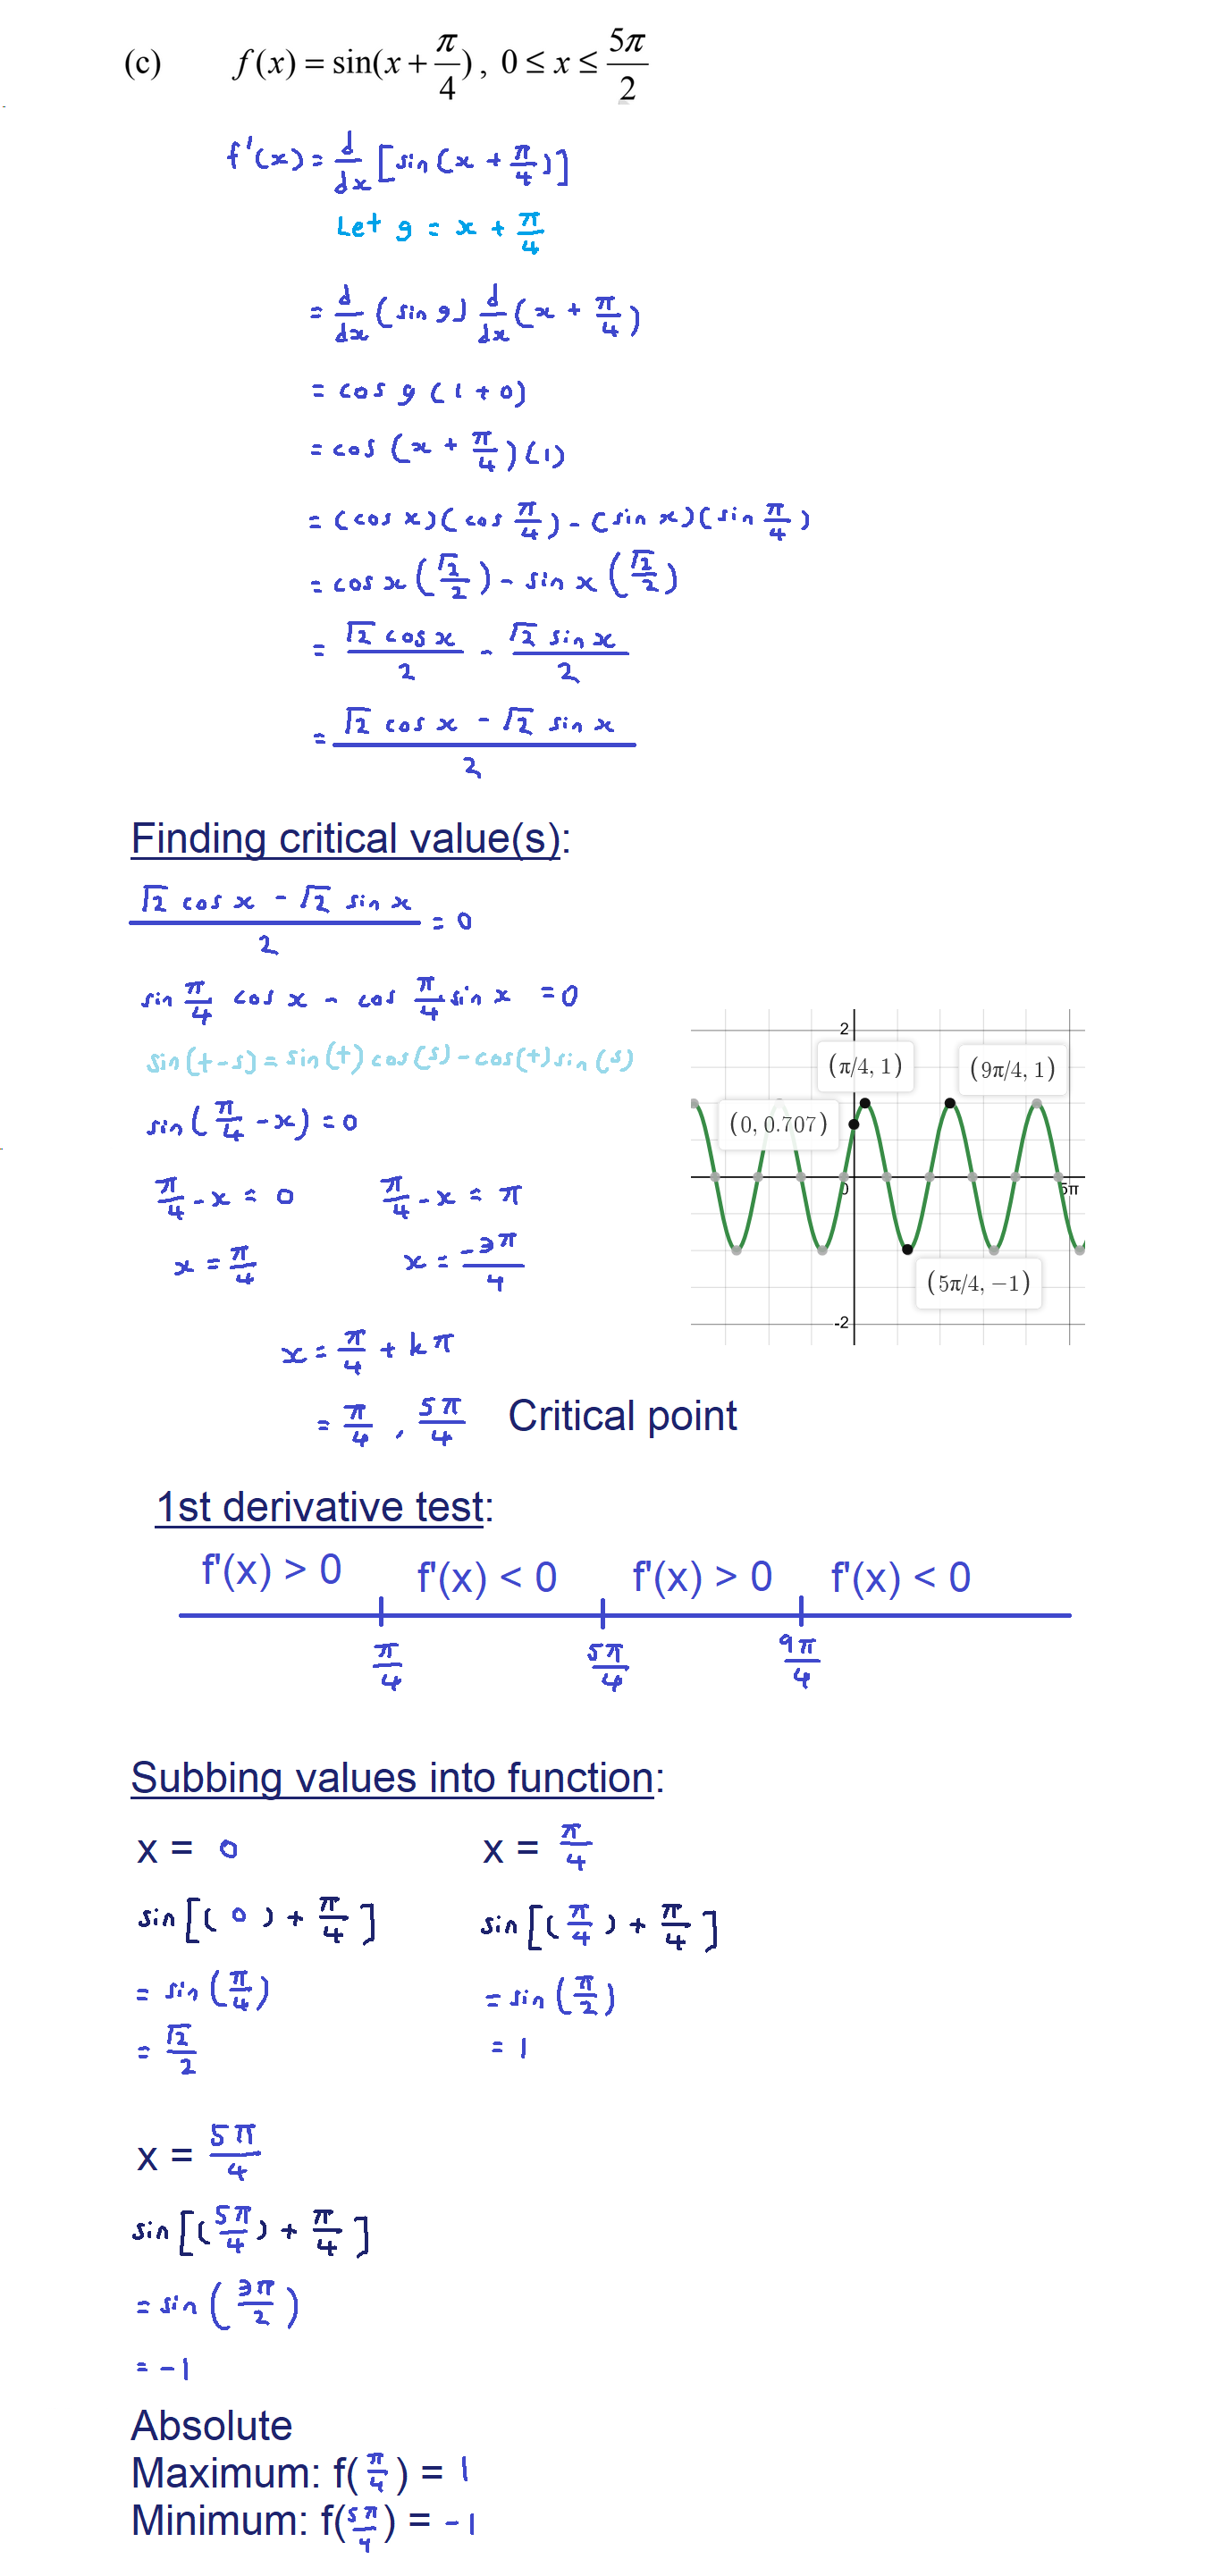 (c) f(x) = sin(x + π/4), 0 ≤ x ≤ 5π/2
f'(x) = d/dx [sin (x + π/4)]
Let g = x + π/4
= d/dx (sin g) d/dx (x + π/4)
= cos g (1 + 0)
= cos (x + π/4) (1)
= (cos x)(cos π/4) - (sin x)(sin π/4)
= cos x (√2/2) - sin x (√2/2)
= √2 cos x/2 - √2 sin x/2
= (√2 cos x - √2 sin x)/2
Finding critical value(s):
(√2 cos x - √2 sin x)/2 = 0
sin π/4 cos x - cos π/4 sin x = 0
sin (t - s) = sin (t) cos (s) - cos (t) sin (s)
sin (π/4 - x) = 0
π/4 - x = 0 π/4 - x = π
x = π/4 x = -3π/4
x = π/4 + kπ
= π/4, 5π/4 Critical point
2
(π/4, 1) (9π/4, 1)
(0, 0.707)
0 5π
(5π/4, −1)
-2
1st derivative test:
f'(x) > 0 f'(x) < 0 f'(x) > 0 f'(x) < 0
π/4 5π/4 9π/4
Subbing values into function:
x = 0 x = π/4
sin [( 0 ) + π/4] sin [( π/4 ) + π/4]
= sin (π/4) = sin (π/2)
= √2/2 = 1
x = 5π/4
sin [( 5π/4 ) + π/4]
= sin (3π/2)
= -1
Absolute
Maximum: f(π/4) = 1
Minimum: f(5π/4) = -1